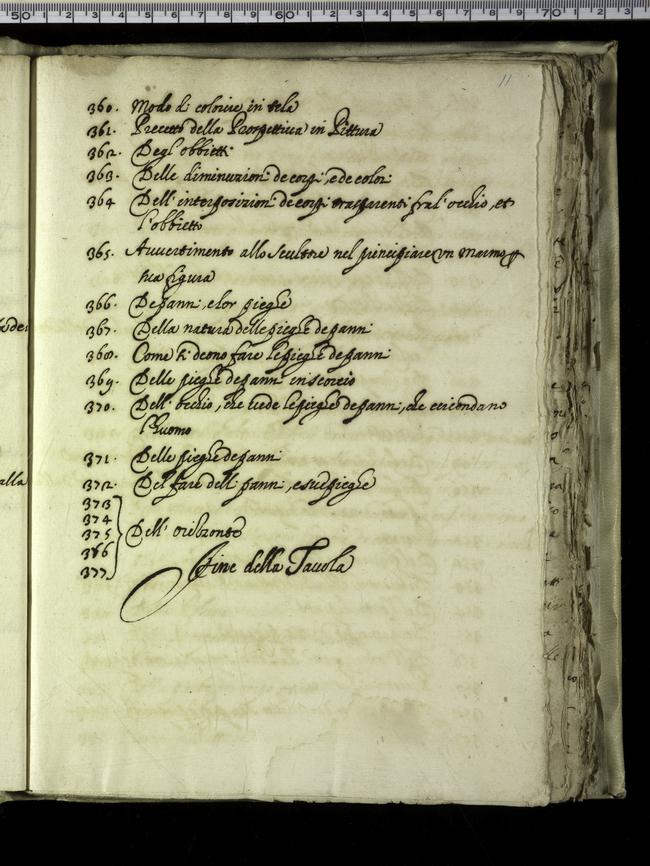 11
360. Modo di colorire in tela
361. Precetto della Prospettiva in Pittura
362. Degl'obbietti
363. Delle diminuzioni de corpi, e de colori
364 Dell'interposizioni de corpi trasparenti fra l'occhio, et
l'obbietto
365. Avvertimento allo Scultore nel principiare un marmo
sua figura
366. De panni, e lor pieghe
367. Della natura delle pieghe de panni
368. Come si deono fare le pieghe de panni
369. Delle pieghe de panni in scorcio
370. Dell'occhio, che vede le pieghe de panni, che circondano
l'huomo
371. Delle pieghe de panni
372. Del fare delli panni, e sue pieghe
373
374
375. Dell'orizzonte
376
377.
Fine della Tavola
alla